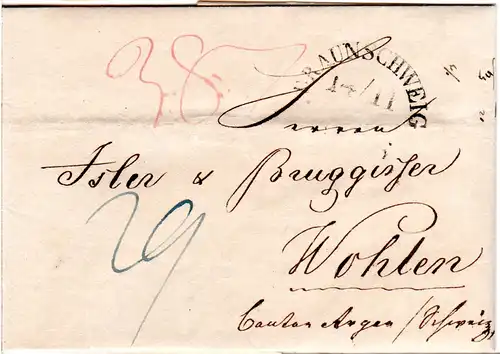 38
BRAUNSCHWEIG
14/11
Herren
Isler & Bruggisser
29
Wohlen
Canton Argau / Schweiz